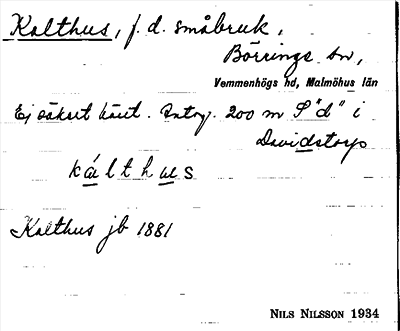 Kalthus, f. d. småbruk,
Börringe sn,
Vemmenhögs hd, Malmöhus län
Ej säkert känt. Antagl. 200 m S "d" i
Davidstorp
kálthus
Kalthus jb 1881
NILS NILSSON 1934